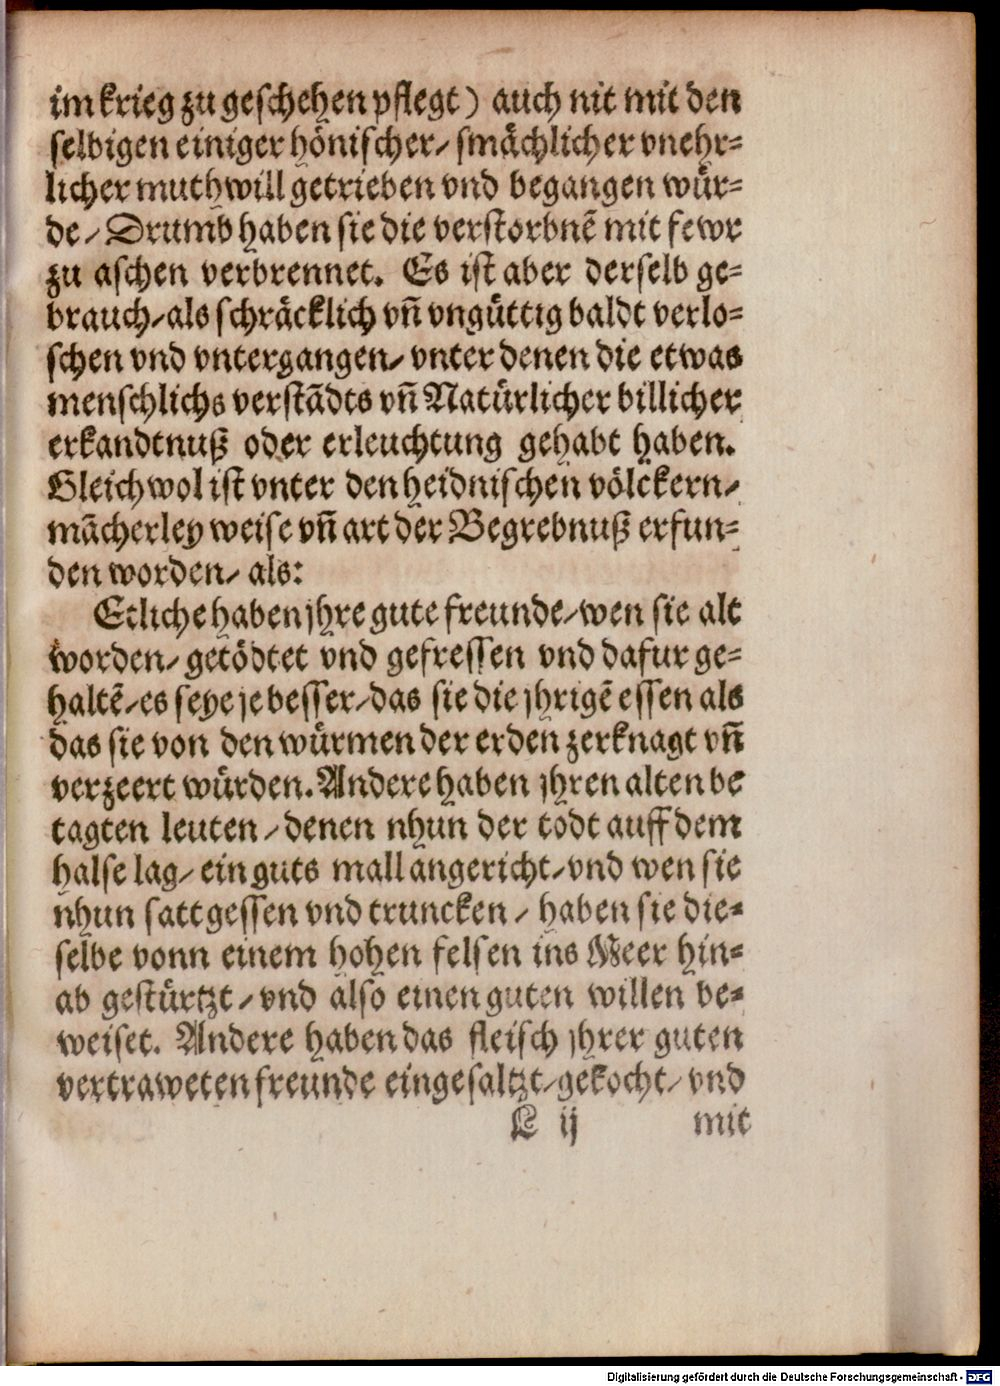 im krieg zu geschehen pflegt) auch nit mit den
selbigen einiger hönischer/ smächlicher vnehr-
licher muthwill getrieben vnd begangen wür-
de/ Drumb haben sie die verstorbnẽ mit fewr
zu aschen verbrennet. Es ist aber derselb ge-
brauch/ als schräcklich vñ vngüttig baldt verlo-
schen vnd vntergangen/ vnter denen die etwas
menschlichs verstãdts vñ Natürlicher billicher
erkandtnuß oder erleuchtung gehabt haben.
Gleichwol ist vnter den heidnischen völckern/
mãcherley weise vñ art der Begrebnuß erfun-
den worden/ als:
Etliche haben jhre gute freunde/ wen sie alt
worden/ getödtet vnd gefressen vnd dafur ge-
haltẽ/ es seye je besser/ das sie die jhrigẽ essen als
das sie von den würmen der erden zerknagt vñ
verzeert würden. Andere haben jhren alten be
tagten leuten/ denen nhun der todt auff dem
halse lag/ ein guts mall angericht/ vnd wen sie
nhun satt gessen vnd truncken/ haben sie die-
selbe vonn einem hohen felsen ins Meer hin-
ab gestürtzt/ vnd also einen guten willen be-
weiset. Andere haben das fleisch jhrer guten
vertraweten freunde eingesaltzt/ gekocht/ vnd
L ij mit
Digitalisierung gefördert durch die Deutsche Forschungsgemeinschaft - DFG